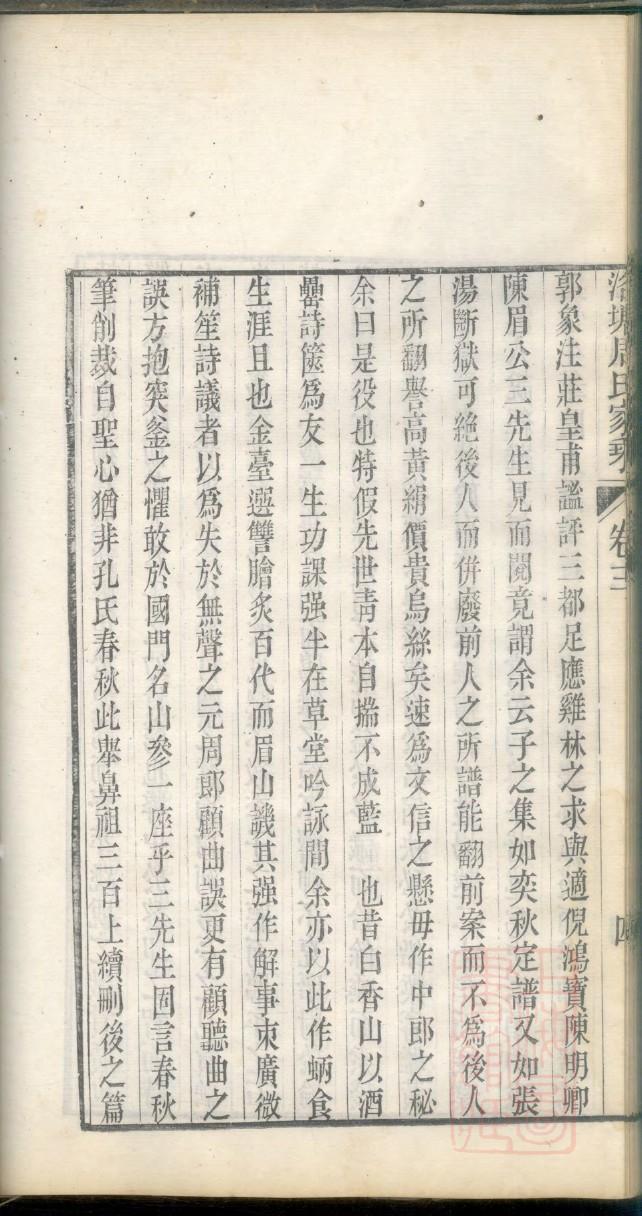 周氏家乘 卷三 四
郭象注莊皇甫謐評三都足應雞林之求與適倪鴻寶陳明卿
陳眉公三先生見而閱竟謂余云子之集如奕秋定譜又如張
湯斷獄可絶後人而併廢前人之所譜能翻前案而不爲後人
之所翻譽高黃絹價貴烏絲矣速爲文信之懸毋作中郎之秘
余曰是役也特假先世靑本自揣不成藍 也昔白香山以酒
罍詩篋爲友一生功課强半在草堂吟詠間余亦以此作蛃食
生涯且也金臺選讐膾炙百代而眉山譏其强作解事束廣微
補笙詩議者以爲失於無聲之元周郎顧曲誤更有顧聽曲之
誤方抱突釜之懼敢於國門名山參一座乎三先生固言春秋
筆削裁自聖心猶非孔氏春秋此舉鼻祖三百上續刪後之篇